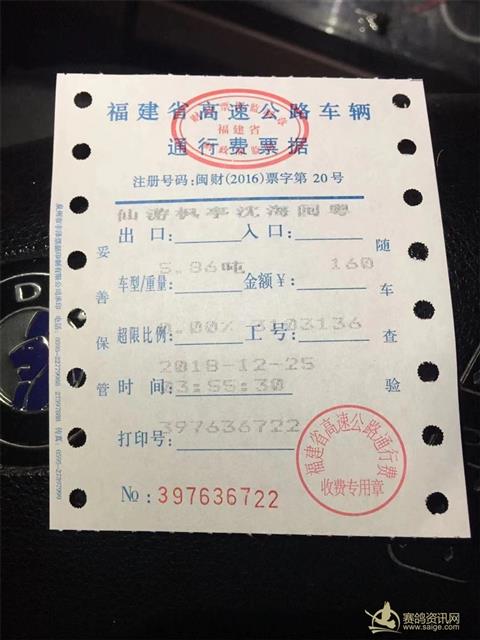 福建省高速公路车辆
通行费票据
福建省
注册号码:闽财(2016)票字第20号
仙游枫亭沈海闽粤
出口: 入口:
5.86吨 160
车型/重量: 金额¥:
0.00% 3103136
超限比例: 工号:
2018-12-25
时间: 03:55:30
397636722
打印号:
№:397636722
妥善保管
随车查验
福建省高速公路通行费
收费专用章
赛鸽资讯网
www.saige.com